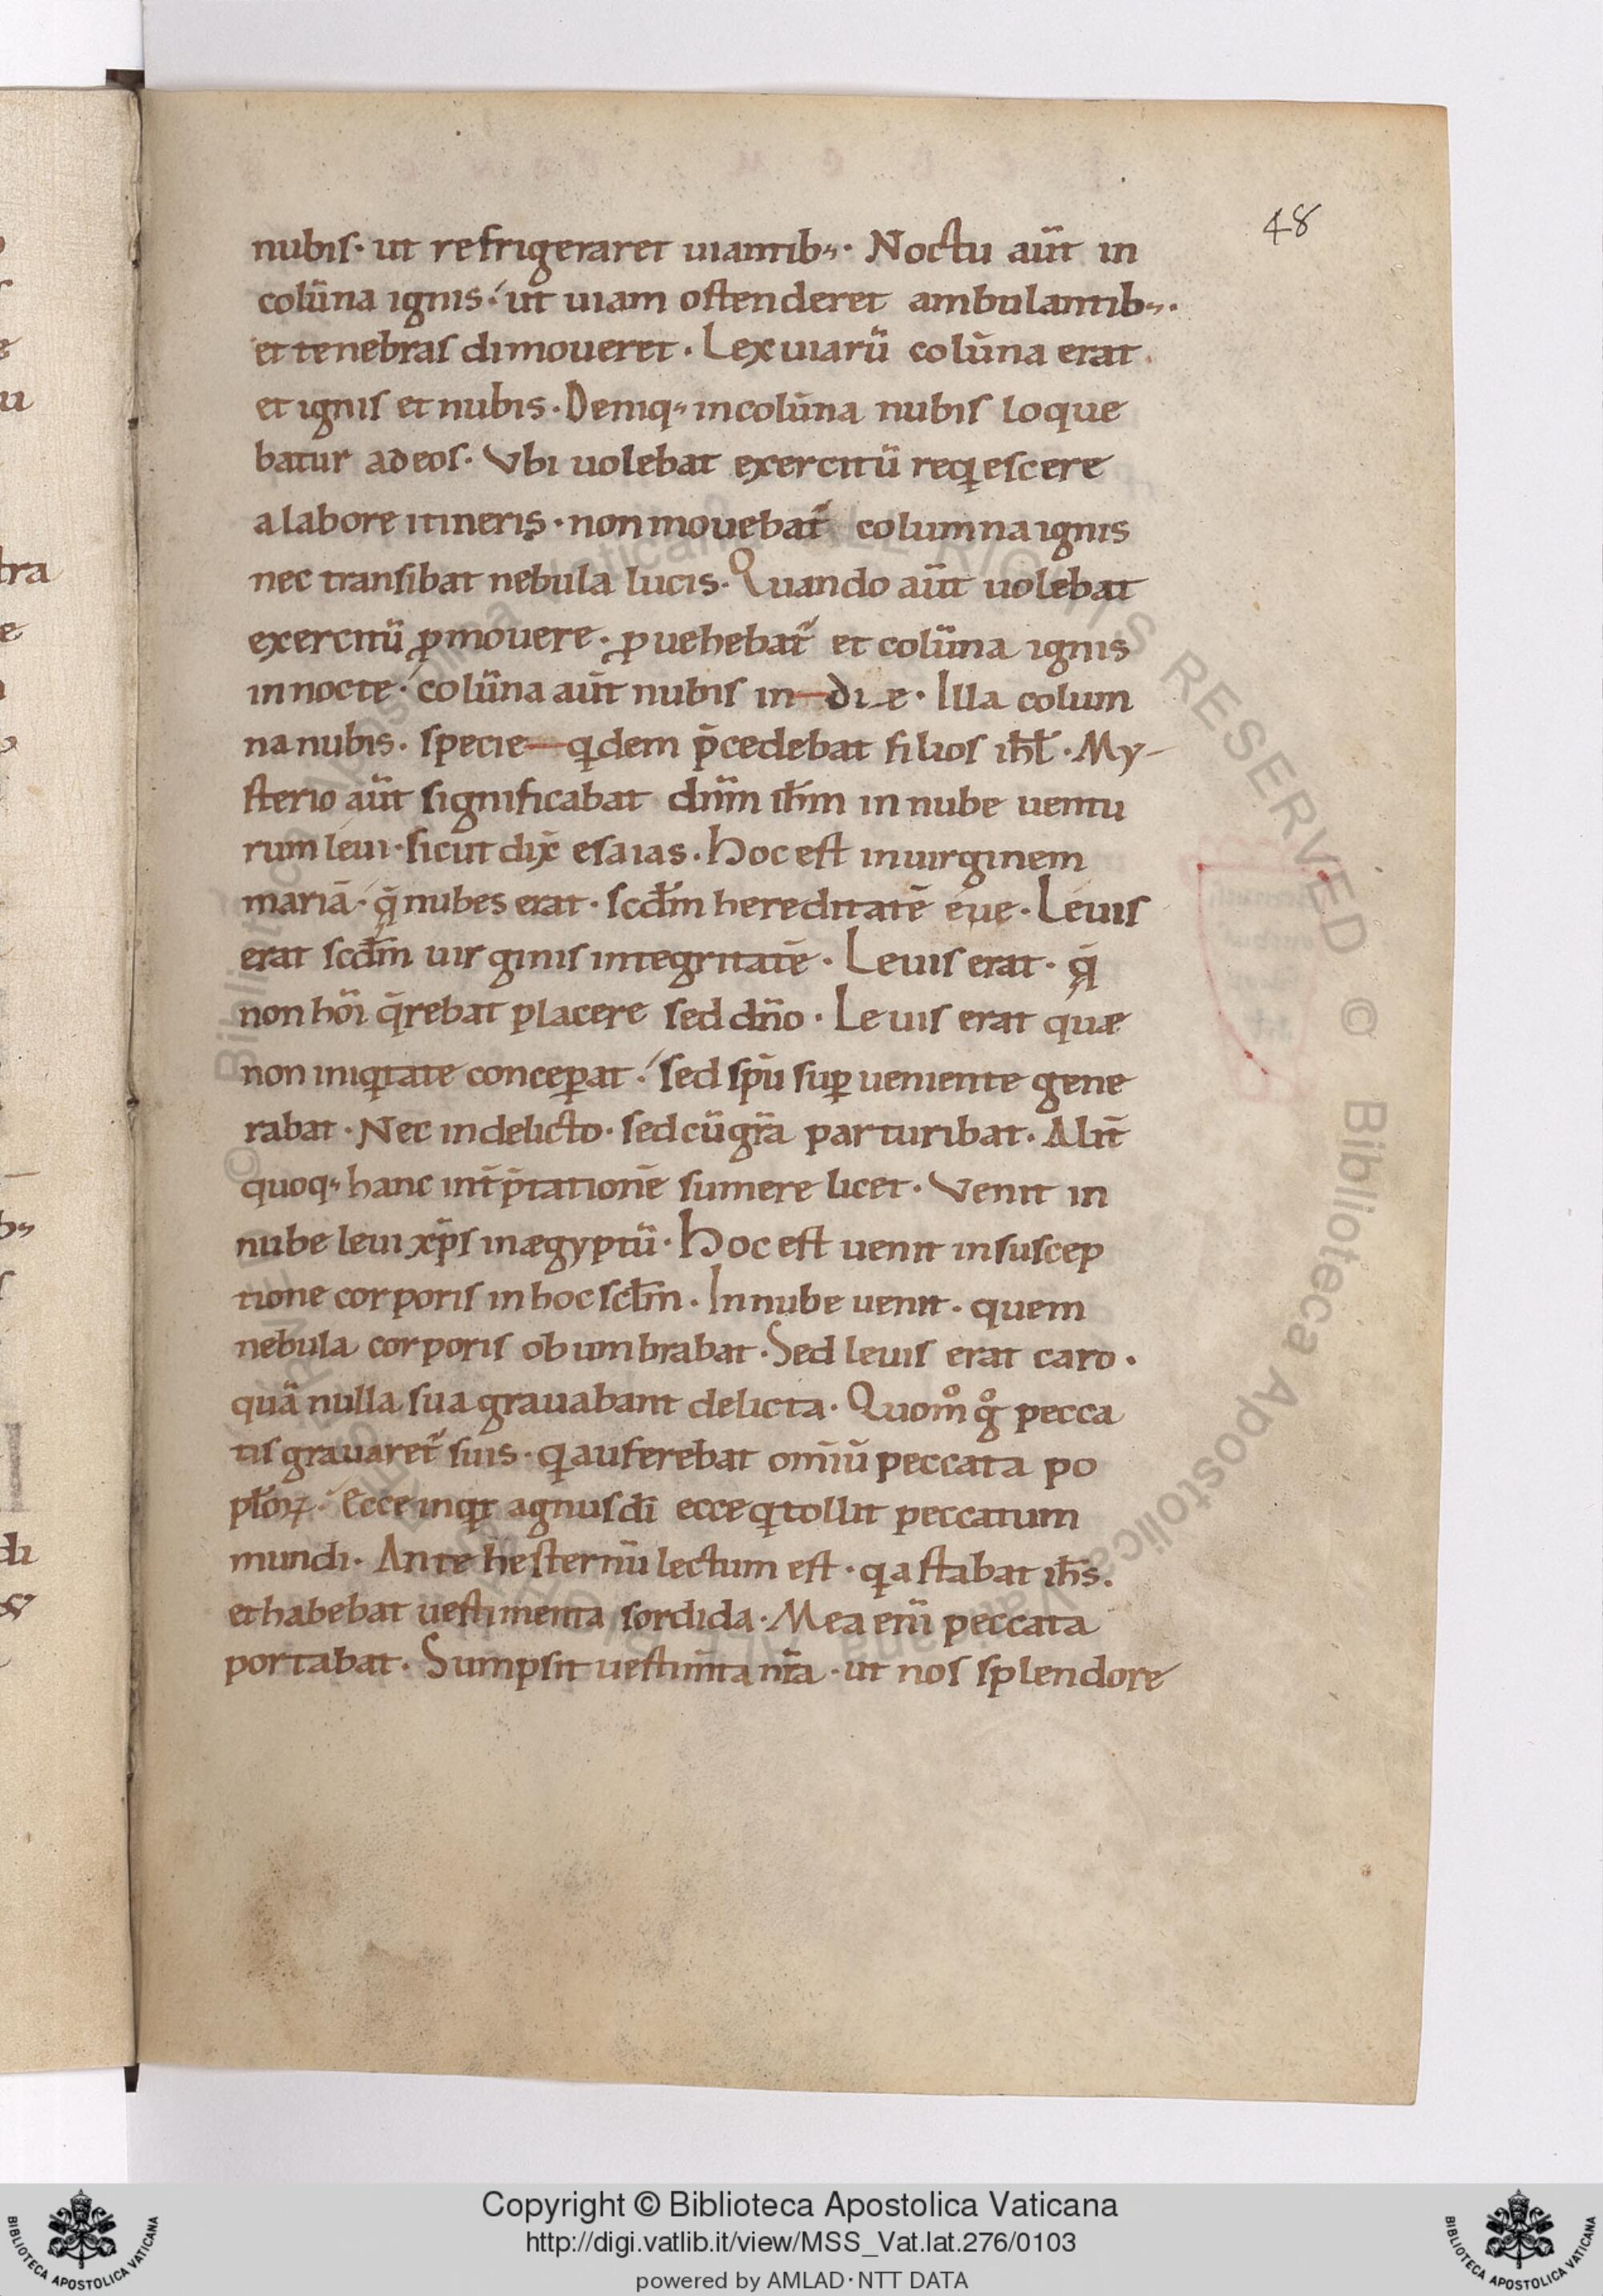 48
nubis· ut refrigeraret uiantib;· Noctu aūt in
colūna ignis· ut uiam ostenderet ambulantib;·
et tenebras dimoueret· Lex uiarū colūna erat·
et ignis et nubis· Deniq; in colūna nubis loque
batur ad eos· Vbi uolebat exercitū reqescere
a labore itineris· non mouebat᷑ columna ignis
nec transibat nebula lucis· Quando aūt uolebat
exercitū ꝓmouere· ꝓuehebat᷑ et colūna ignis
in nocte· colūna aūt nubis in die· Illa colum
na nubis· specie qdem p̄cedebat filios ihl̄· My-
sterio aūt significabat dnm̄ ihm̄ in nube uentu
rum leui· sicut dix̄ esaias· Hoc est in uirginem
mariā· q̄ nubes erat· scdm̄ hereditatē eue· Leuis
erat scdm̄ uirginis integritatē· Leuis erat· q̄
non hōi q̄rebat placere sed dn̄o· Leuis erat quæ
non iniqtate conceꝑat· sed spū suꝑueniente gene
rabat· Nec in delicto· sed cū gr̄a parturibat· Alit̄
quoq; hanc int̄p̄tationē sumere licet· Venit in
nube leui xp̄s in ægyptū· Hoc est uenit in suscep
tione corporis in hoc sclm̄· In nube uenit· quem
nebula corporis obumbrabat· Sed leuis erat caro·
quā nulla sua grauabant delicta· Quom̊ gͦ pecca
tis grauaret᷑ suis· q auferebat omīū peccata po
pl̄oꝝ· Ecce inqt agnus dī ecce q tollit peccatum
mundi· Ante hesternū lectum est· q astabat ih̄s·
et habebat uestimenta sordida· Mea eni̅ peccata
portabat· Sumpsit uestim̄ta nr̄a· ut nos splendore
Copyright © Biblioteca Apostolica Vaticana
http://digi.vatlib.it/view/MSS_Vat.lat.276/0103
powered by AMLAD·NTT DATA
BIBLIOTECA APOSTOLICA VATICANA
BIBLIOTECA APOSTOLICA VATICANA